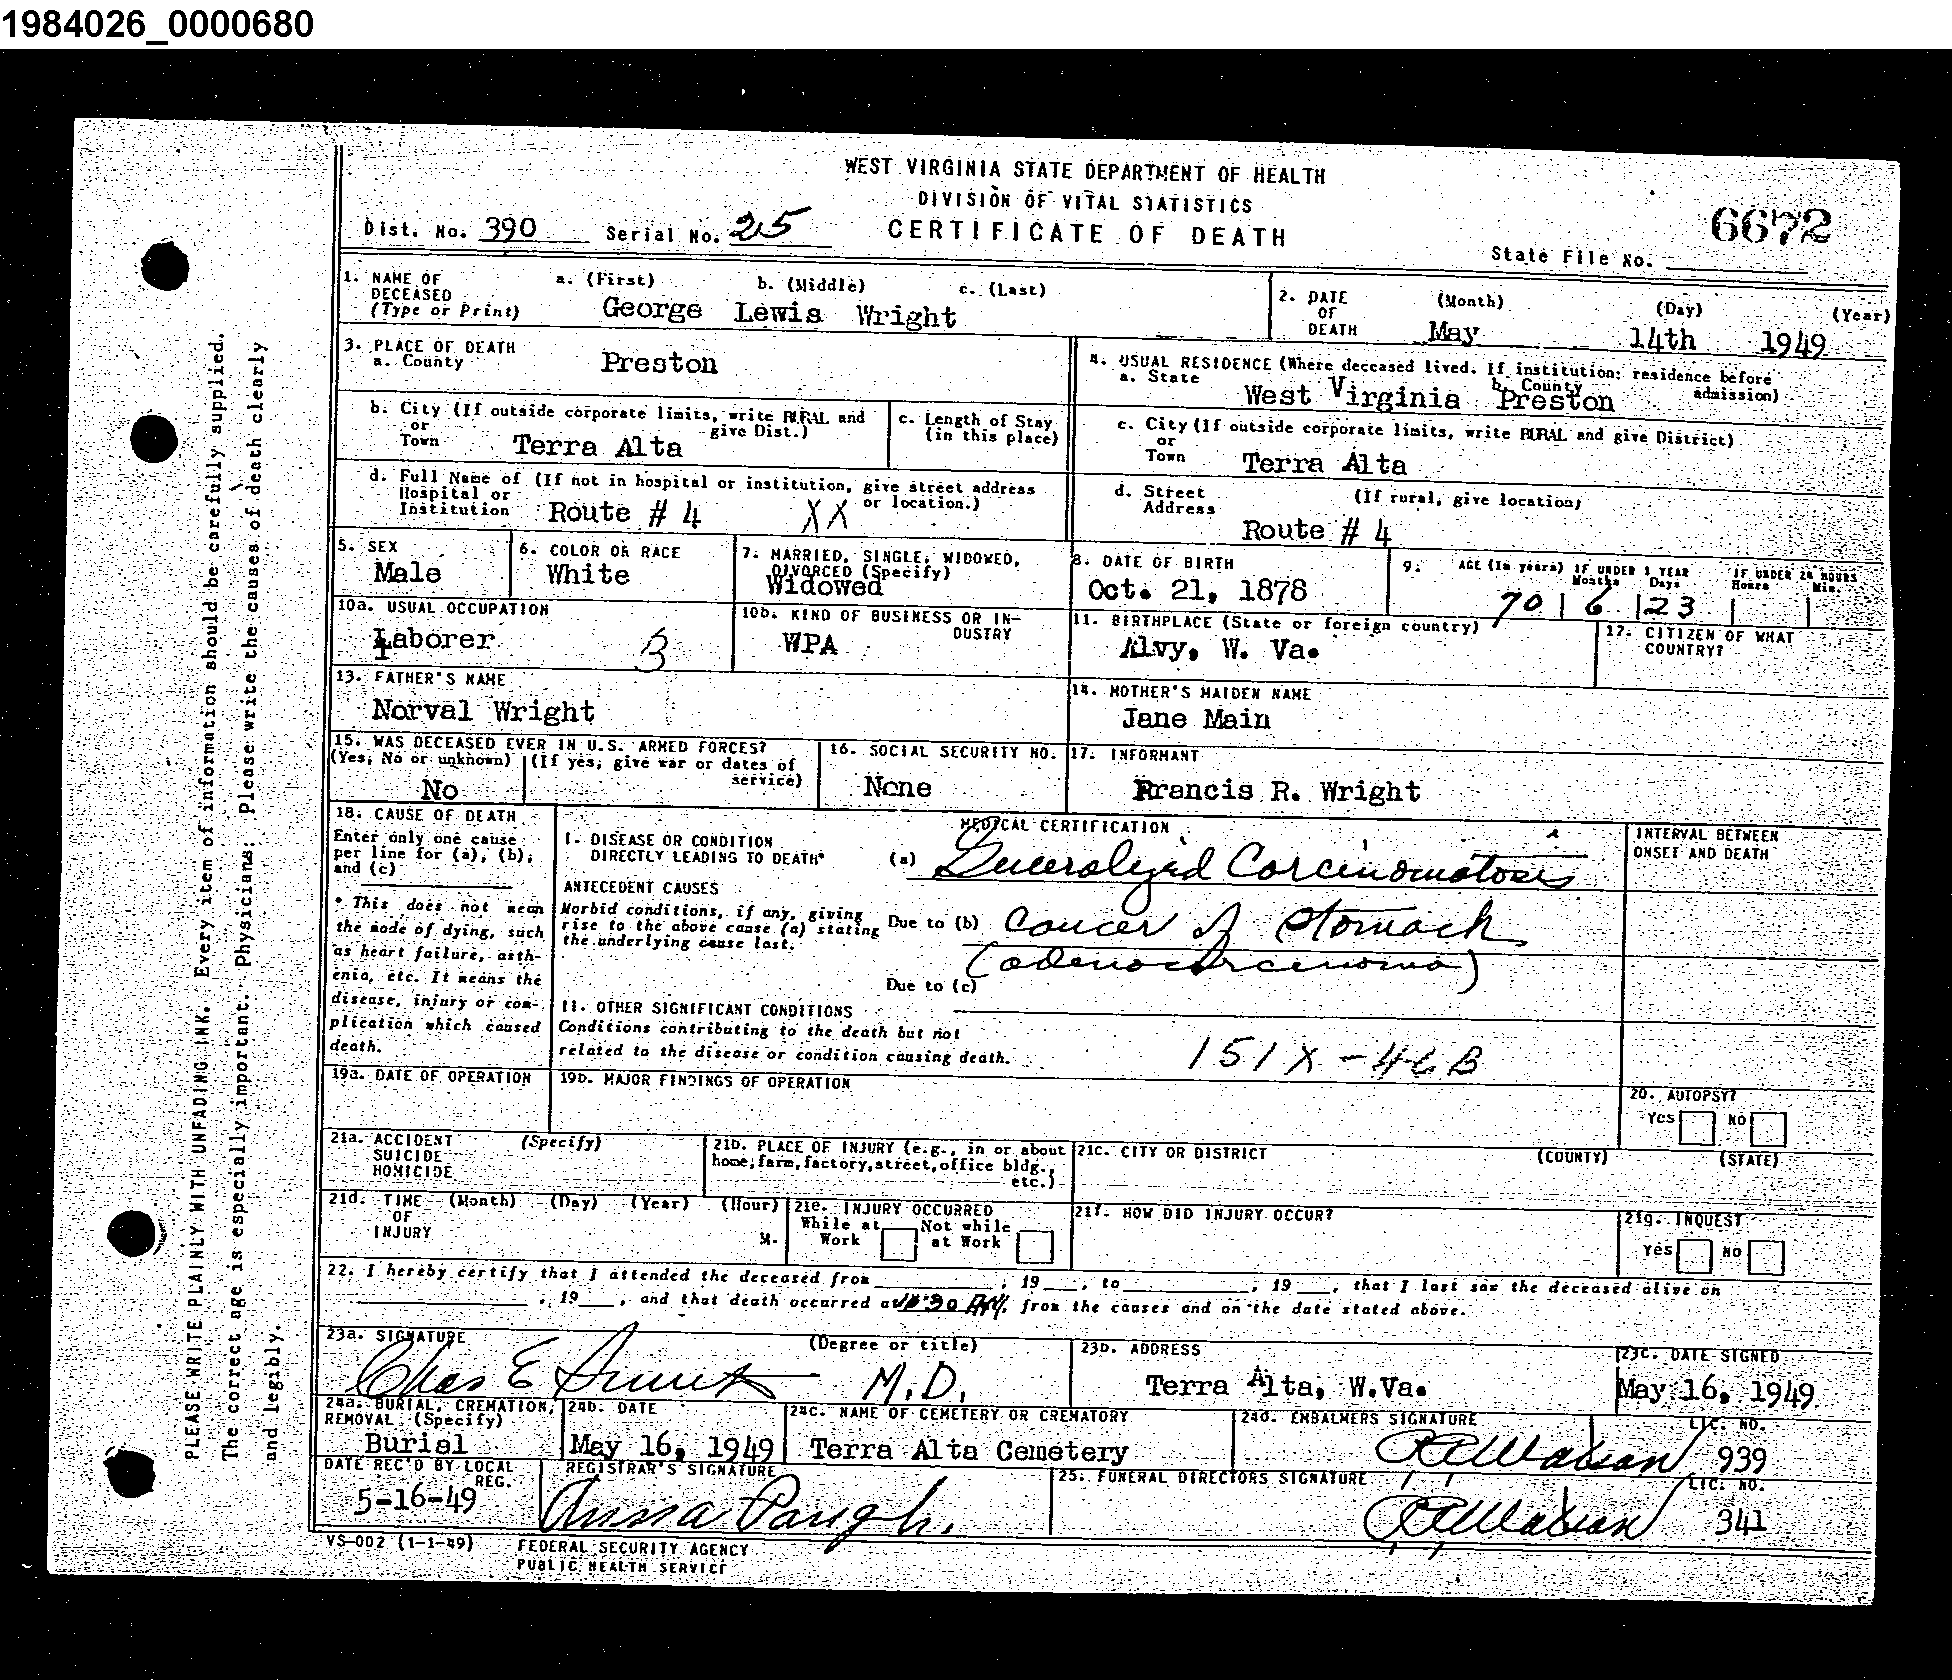 1984026_0000680
WEST VIRGINIA STATE DEPARTMENT OF HEALTH
DIVISION OF VITAL STATISTICS
CERTIFICATE OF DEATH
Dist. No. 390 Serial No. 25
6672
State File No.
1. NAME OF DECEASED (Type or Print) a. (First) b. (Middle) c. (Last)
George Lewis Wright
2. DATE OF DEATH (Month) (Day) (Year)
May 14th 1949
3. PLACE OF DEATH
a. County Preston
4. USUAL RESIDENCE (Where deceased lived. If institution: residence before admission)
a. State West Virginia b. County Preston
b. City (If outside corporate limits, write RURAL and give Dist.)
or Town Terra Alta
c. Length of Stay (in this place)
c. City (If outside corporate limits, write RURAL and give District)
or Town Terra Alta
d. Full Name of (If not in hospital or institution, give street address or location.)
Hospital or Institution Route # 4 XX
d. Street Address (If rural, give location)
Route # 4
5. SEX
Male
6. COLOR OR RACE
White
7. MARRIED, SINGLE, WIDOWED, DIVORCED (Specify)
Widowed
8. DATE OF BIRTH
Oct. 21, 1878
9. AGE (In years) IF UNDER 1 YEAR Months Days IF UNDER 24 HOURS Hours Min.
70 6 23
10a. USUAL OCCUPATION
Laborer 3
10b. KIND OF BUSINESS OR INDUSTRY
WPA
11. BIRTHPLACE (State or foreign country)
Alvy, W. Va.
12. CITIZEN OF WHAT COUNTRY?
13. FATHER'S NAME
Norval Wright
14. MOTHER'S MAIDEN NAME
Jane Main
15. WAS DECEASED EVER IN U.S. ARMED FORCES?
(Yes, No or unknown) (If yes, give war or dates of service)
No
16. SOCIAL SECURITY NO.
None
17. INFORMANT
Francis R. Wright
18. CAUSE OF DEATH
Enter only one cause per line for (a), (b), and (c)
* This does not mean the mode of dying, such as heart failure, asthenia, etc. It means the disease, injury or complication which caused death.
MEDICAL CERTIFICATION
INTERVAL BETWEEN ONSET AND DEATH
I. DISEASE OR CONDITION DIRECTLY LEADING TO DEATH*
(a) Generalized Carcinomatosis
ANTECEDENT CAUSES
Morbid conditions, if any, giving rise to the above cause (a) stating the underlying cause last.
Due to (b) Cancer of Stomach
(adenocarcinoma)
Due to (c)
II. OTHER SIGNIFICANT CONDITIONS
Conditions contributing to the death but not related to the disease or condition causing death.
151X-46B
19a. DATE OF OPERATION
19b. MAJOR FINDINGS OF OPERATION
20. AUTOPSY?
Yes No
21a. ACCIDENT SUICIDE HOMICIDE (Specify)
21b. PLACE OF INJURY (e.g., in or about home, farm, factory, street, office bldg., etc.)
21c. CITY OR DISTRICT (COUNTY) (STATE)
21d. TIME OF INJURY (Month) (Day) (Year) (Hour) M.
21e. INJURY OCCURRED
While at Work Not while at Work
21f. HOW DID INJURY OCCUR?
21g. INQUEST
Yes No
22. I hereby certify that I attended the deceased from , 19 , to , 19 , that I last saw the deceased alive on
, 19 , and that death occurred at M. from the causes and on the date stated above.
23a. SIGNATURE (Degree or title)
Chas E M.D.
23b. ADDRESS
Terra Alta, W.Va.
23c. DATE SIGNED
May 16, 1949
24a. BURIAL, CREMATION, REMOVAL (Specify)
Burial
24b. DATE
May 16, 1949
24c. NAME OF CEMETERY OR CREMATORY
Terra Alta Cemetery
24d. EMBALMERS SIGNATURE LIC. NO.
939
DATE REC'D BY LOCAL REG.
5-16-49
REGISTRAR'S SIGNATURE
Anna Paugh.
25. FUNERAL DIRECTORS SIGNATURE LIC. NO.
341
VS-002 (1-1-49) FEDERAL SECURITY AGENCY
PUBLIC HEALTH SERVICE
PLEASE WRITE PLAINLY WITH UNFADING INK. Every item of information should be carefully supplied.
The correct age is especially important. Physicians: Please write the causes of death clearly
and legibly.